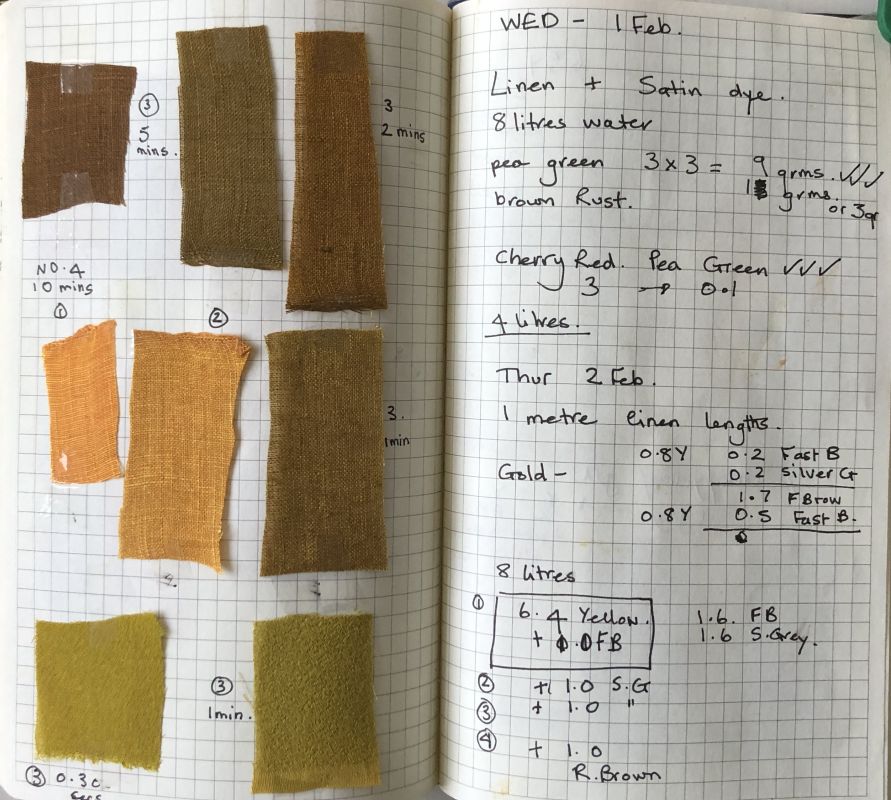 ③
5
mins.
3
2 mins
NO.4
10 mins
①
②
3.
1min
4.
3
1min.
③ 0.3c
WED - 1 Feb.
Linen + Satin dye.
8 litres water
pea green 3 x 3 = 9 grms. ✓✓✓
brown Rust. grms.
or 3gr
Cherry Red. Pea Green ✓✓✓
3 → 0.1
4 litres.
Thur 2 Feb.
1 metre linen lengths.
0.8Y 0.2 Fast B
Gold - 0.2 Silver G
1.7 F Brow
0.8Y 0.5 Fast B.
8 litres
① 6.4 Yellow. 1.6. FB
+ .0FB 1.6 S.Grey.
② + 1.0 S.G
③ + 1.0 "
④ + 1.0
R.Brown